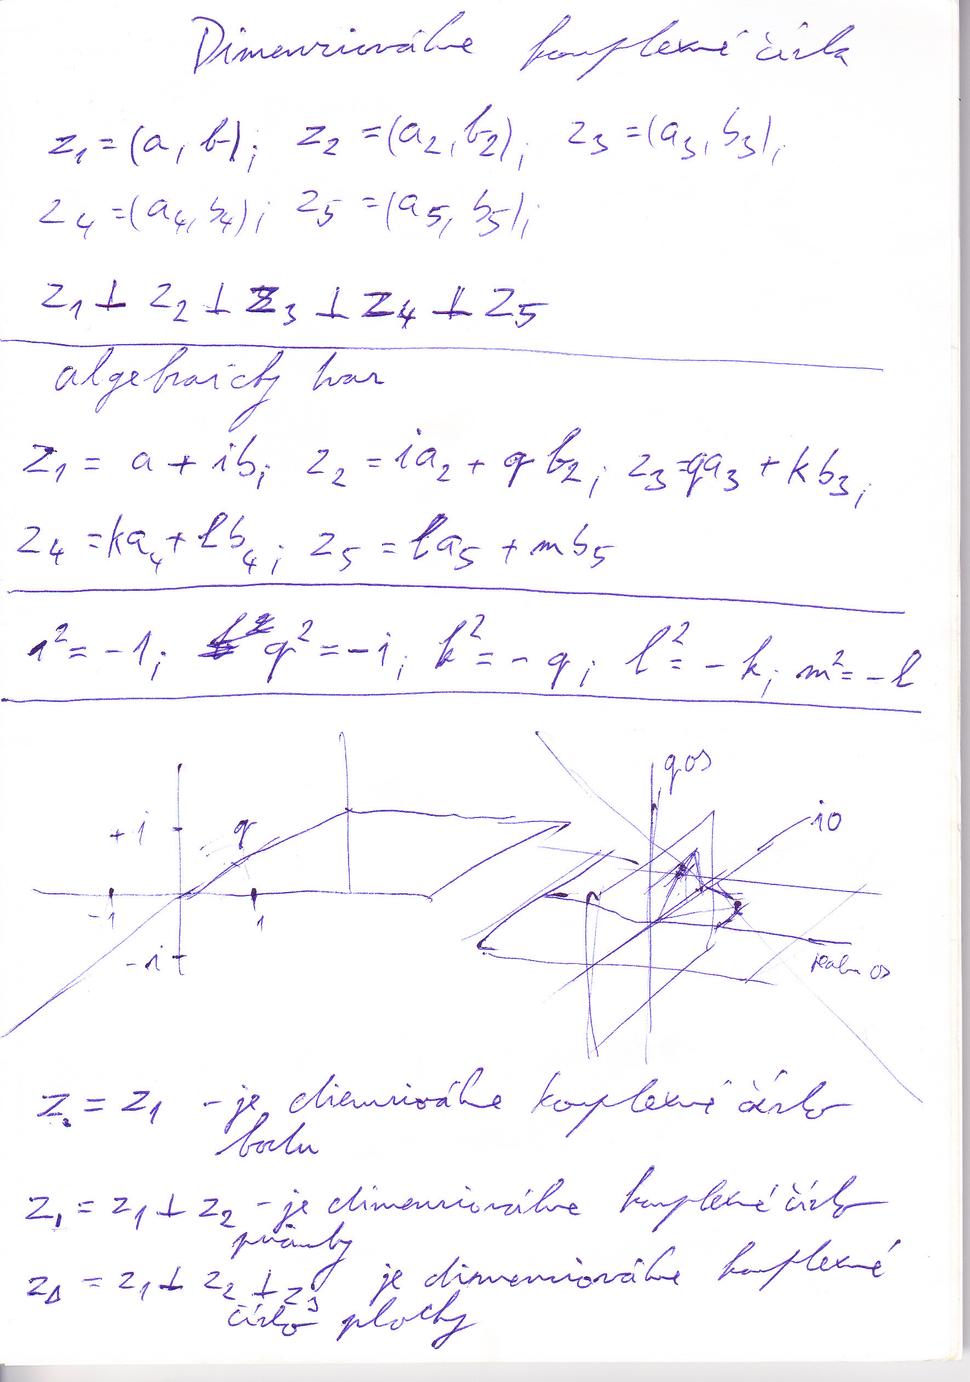 Dimenzionálne komplexné čísla
z₁ = (a, b); z₂ = (a₂, b₂); z₃ = (a₃, b₃);
z₄ = (a₄, b₄); z₅ = (a₅, b₅);
z₁ ⊥ z₂ ⊥ z₃ ⊥ z₄ ⊥ z₅
algebraický tvar
z₁ = a + ib; z₂ = ia₂ + qb₂; z₃ = qa₃ + kb₃;
z₄ = ka₄ + lb₄; z₅ = la₅ + mb₅
i² = -1; q² = -i; k² = -q; l² = -k; m² = -l
q os
+i q io
-1 1
-i reálna os
z. = z₁ - je dimenzionálne komplexné číslo
bodu
z₁ = z₁ ⊥ z₂ - je dimenzionálne komplexné číslo
priamky
z△ = z₁ ⊥ z₂ ⊥ z₃ je dimenzionálne komplexné
číslo plochy